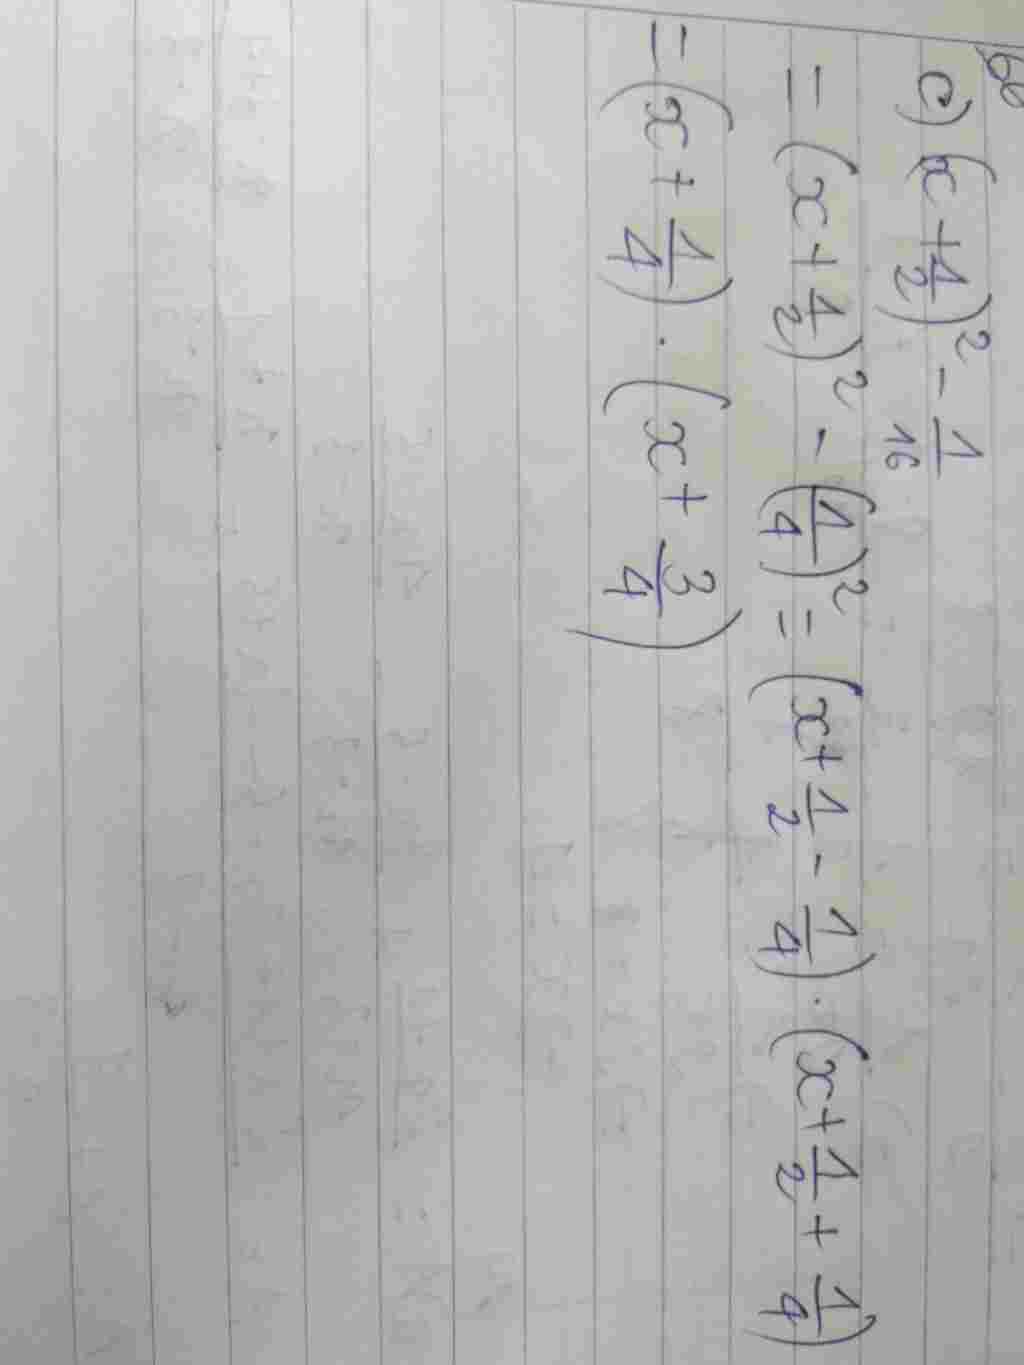 66
c) (x + 1/2)² - 1/16
= (x + 1/2)² - (1/4)² = (x + 1/2 - 1/4) . (x + 1/2 + 1/4)
= (x + 1/4) . (x + 3/4)